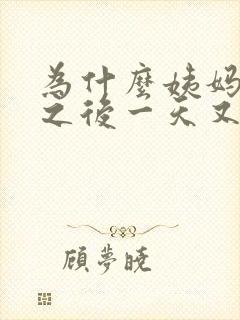 為什麼姨媽
之後一天又
顧夢曉